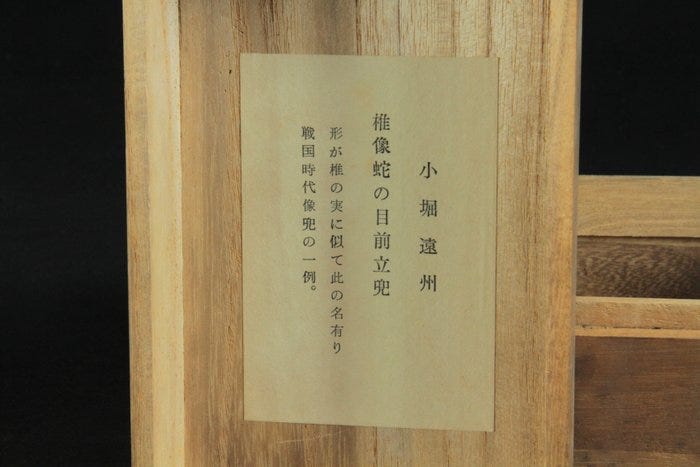 小堀遠州
椎像蛇の目前立兜
形が椎の実に似て此の名有り
戦国時代像兜の一例。